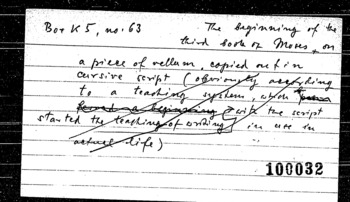 Box K5, no. 63 The beginning of the
third book of Moses, on
a piece of vellum, copied out in
cursive script (obviously according
to a teaching system which
found a beginning (with the script
started the teaching of writing) in use in
actual life)
100032